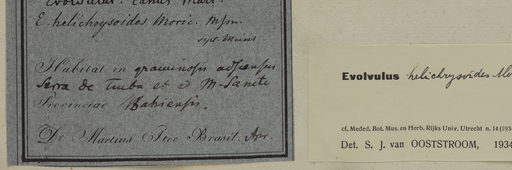 Evolvulus. canus Mart.
E. helichrysoides Moric. Mpn.
Habitat in graminosis adscensus
Serra de Tiuba et ad M. Sancte
Provinciae Bahiensis.
De Martius Iter Brasil. Apr.
Evolvulus helichrysoides
cf. Meded. Bot. Mus. en Herb. Rijks Univ. Utrecht n. 14 (193
Det. S. J. van OOSTSTROOM, 1934